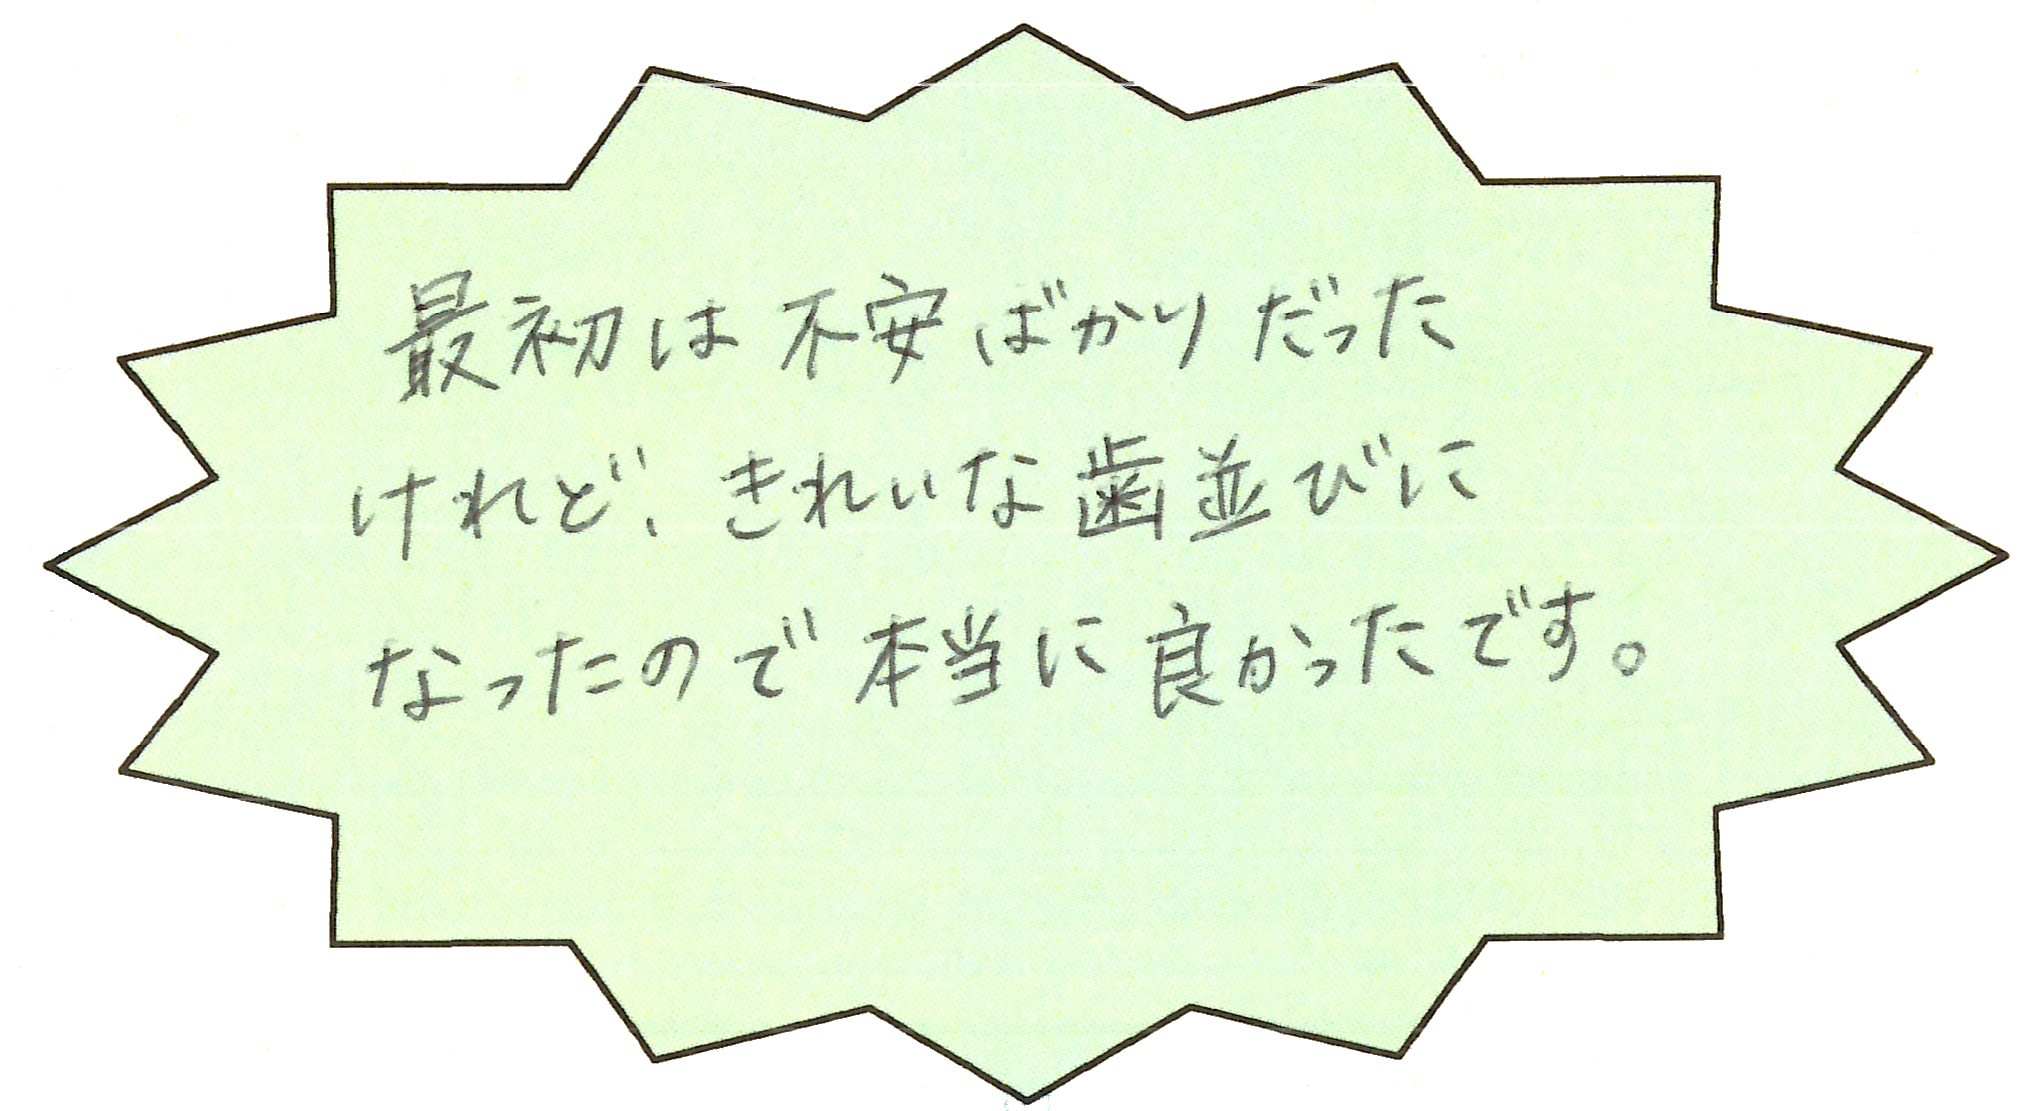 最初は不安ばかりだった
けれど、きれいな歯並びに
なったので本当に良かったです。